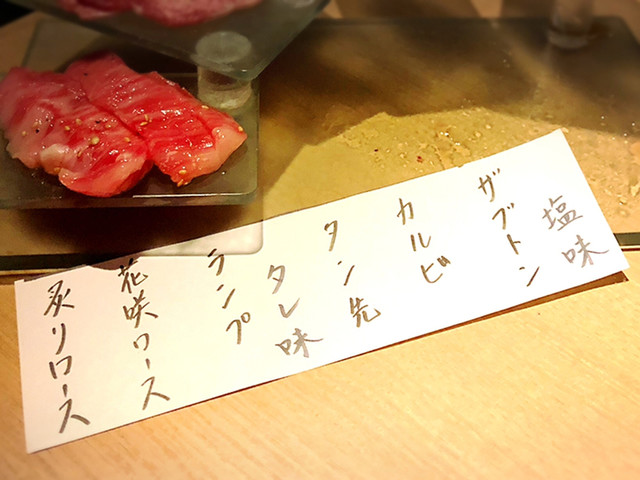 塩味
ザブトン
カルビ
タン先
タレ味
ランプ
花咲ロース
炙リロース